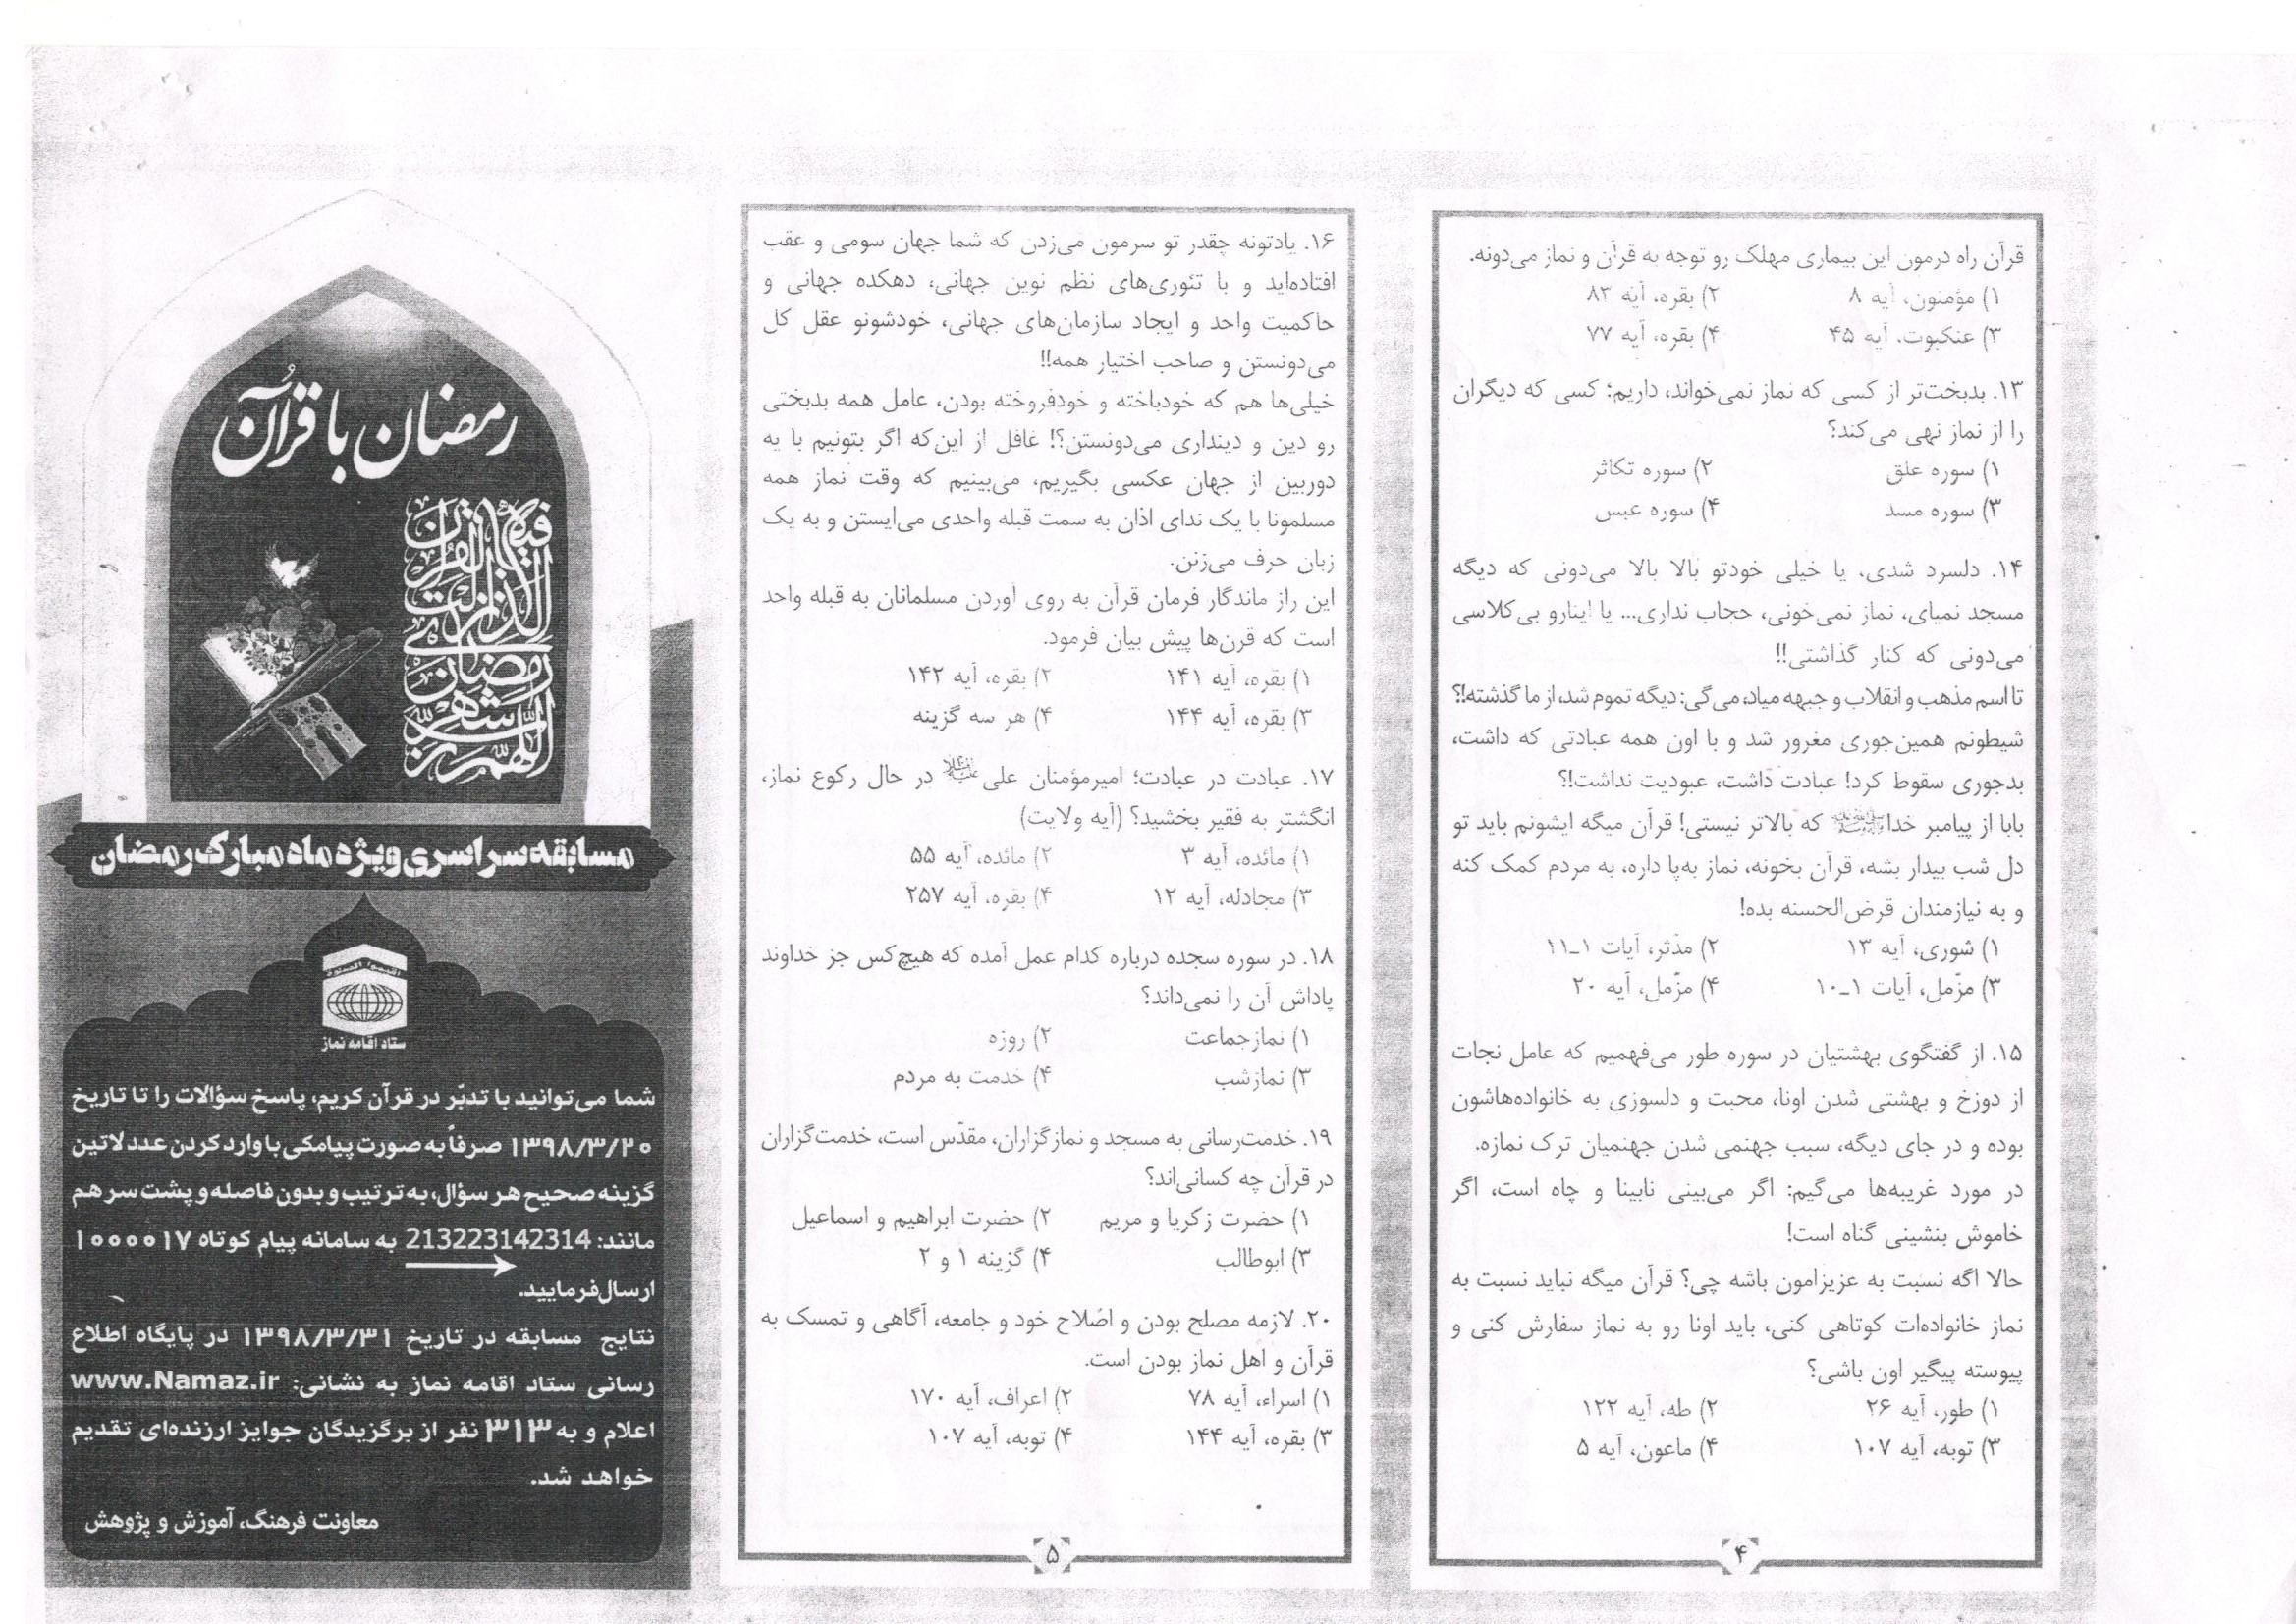 قرآن راه درمون این بیماری مهلک رو توجه به قرآن و نماز می‌دونه.
۱) مؤمنون، آیه ۸ ۲) بقره، آیه ۸۳
۳) عنکبوت، آیه ۴۵ ۴) بقره، آیه ۷۷
۱۳. بدبخت‌تر از کسی که نماز نمی‌خواند، داریم؛ کسی که دیگران
را از نماز نهی می‌کند؟
۱) سوره علق ۲) سوره تکاثر
۳) سوره مسد ۴) سوره عبس
۱۴. دلسرد شدی، یا خیلی خودتو بالا بالا می‌دونی که دیگه
مسجد نمیای، نماز نمی‌خونی، حجاب نداری... یا اینارو بی‌کلاسی
می‌دونی که کنار گذاشتی!!
تا اسم مذهب و انقلاب و جبهه میاد، می‌گی: دیگه تموم شد، از ما گذشته!؟
شیطونم همین‌جوری مغرور شد و با اون همه عبادتی که داشت،
بدجوری سقوط کرد! عبادت داشت، عبودیت نداشت!؟
بابا از پیامبر خدا که بالاتر نیستی! قرآن میگه ایشونم باید تو
دل شب بیدار بشه، قرآن بخونه، نماز به‌پا داره، به مردم کمک کنه
و به نیازمندان قرض‌الحسنه بده!
۱) شوری، آیه ۱۳ ۲) مدّثر، آیات ۱ـ۱۱
۳) مزّمل، آیات ۱ـ۱۰ ۴) مزّمل، آیه ۲۰
۱۵. از گفتگوی بهشتیان در سوره طور می‌فهمیم که عامل نجات
از دوزخ و بهشتی شدن اونا، محبت و دلسوزی به خانواده‌هاشون
بوده و در جای دیگه، سبب جهنمی شدن جهنمیان ترک نمازه.
در مورد غریبه‌ها می‌گیم: اگر می‌بینی نابینا و چاه است، اگر
خاموش بنشینی گناه است!
حالا اگه نسبت به عزیزامون باشه چی؟ قرآن میگه نباید نسبت به
نماز خانواده‌ات کوتاهی کنی، باید اونا رو به نماز سفارش کنی و
پیوسته پیگیر اون باشی؟
۱) طور، آیه ۲۶ ۲) طه، آیه ۱۲۲
۳) توبه، آیه ۱۰۷ ۴) ماعون، آیه ۵
۴
۱۶. یادتونه چقدر تو سرمون می‌زدن که شما جهان سومی و عقب
افتاده‌اید و با تئوری‌های نظم نوین جهانی، دهکده جهانی و
حاکمیت واحد و ایجاد سازمان‌های جهانی، خودشونو عقل کل
می‌دونستن و صاحب اختیار همه!!
خیلی‌ها هم که خودباخته و خودفروخته بودن، عامل همه بدبختی
رو دین و دینداری می‌دونستن؟! غافل از این‌که اگر بتونیم با یه
دوربین از جهان عکسی بگیریم، می‌بینیم که وقت نماز همه
مسلمونا با یک ندای اذان به سمت قبله واحدی می‌ایستن و به یک
زبان حرف می‌زنن.
این راز ماندگار فرمان قرآن به روی آوردن مسلمانان به قبله واحد
است که قرن‌ها پیش بیان فرمود.
۱) بقره، آیه ۱۴۱ ۲) بقره، آیه ۱۴۲
۳) بقره، آیه ۱۴۴ ۴) هر سه گزینه
۱۷. عبادت در عبادت؛ امیرمؤمنان علی در حال رکوع نماز،
انگشتر به فقیر بخشید؟ (آیه ولایت)
۱) مائده، آیه ۳ ۲) مائده، آیه ۵۵
۳) مجادله، آیه ۱۲ ۴) بقره، آیه ۲۵۷
۱۸. در سوره سجده درباره کدام عمل آمده که هیچ‌کس جز خداوند
پاداش آن را نمی‌داند؟
۱) نمازجماعت ۲) روزه
۳) نمازشب ۴) خدمت به مردم
۱۹. خدمت‌رسانی به مسجد و نمازگزاران، مقدّس است، خدمت‌گزاران
در قرآن چه کسانی‌اند؟
۱) حضرت زکریا و مریم ۲) حضرت ابراهیم و اسماعیل
۳) ابوطالب ۴) گزینه ۱ و ۲
۲۰. لازمه مصلح بودن و اصلاح خود و جامعه، آگاهی و تمسک به
قرآن و اهل نماز بودن است.
۱) اسراء، آیه ۷۸ ۲) اعراف، آیه ۱۷۰
۳) بقره، آیه ۱۴۴ ۴) توبه، آیه ۱۰۷
۵
رمضان با قرآن
اللهم رب شهر
رمضان
الذی انزلت
فیه القرآن
مسابقه سراسری ویژه ماه مبارک رمضان
ستاد اقامه نماز
شما می‌توانید با تدبّر در قرآن کریم، پاسخ سؤالات را تا تاریخ
۱۳۹۸/۳/۲۰ صرفاً به صورت پیامکی با وارد کردن عدد لاتین
گزینه صحیح هر سؤال، به ترتیب و بدون فاصله و پشت سر هم
مانند: 213223142314 به سامانه پیام کوتاه ۱۰۰۰۰۱۷
ارسال فرمایید.
نتایج مسابقه در تاریخ ۱۳۹۸/۳/۳۱ در پایگاه اطلاع
رسانی ستاد اقامه نماز به نشانی: www.Namaz.ir
اعلام و به ۳۱۳ نفر از برگزیدگان جوایز ارزنده‌ای تقدیم
خواهد شد.
معاونت فرهنگ، آموزش و پژوهش